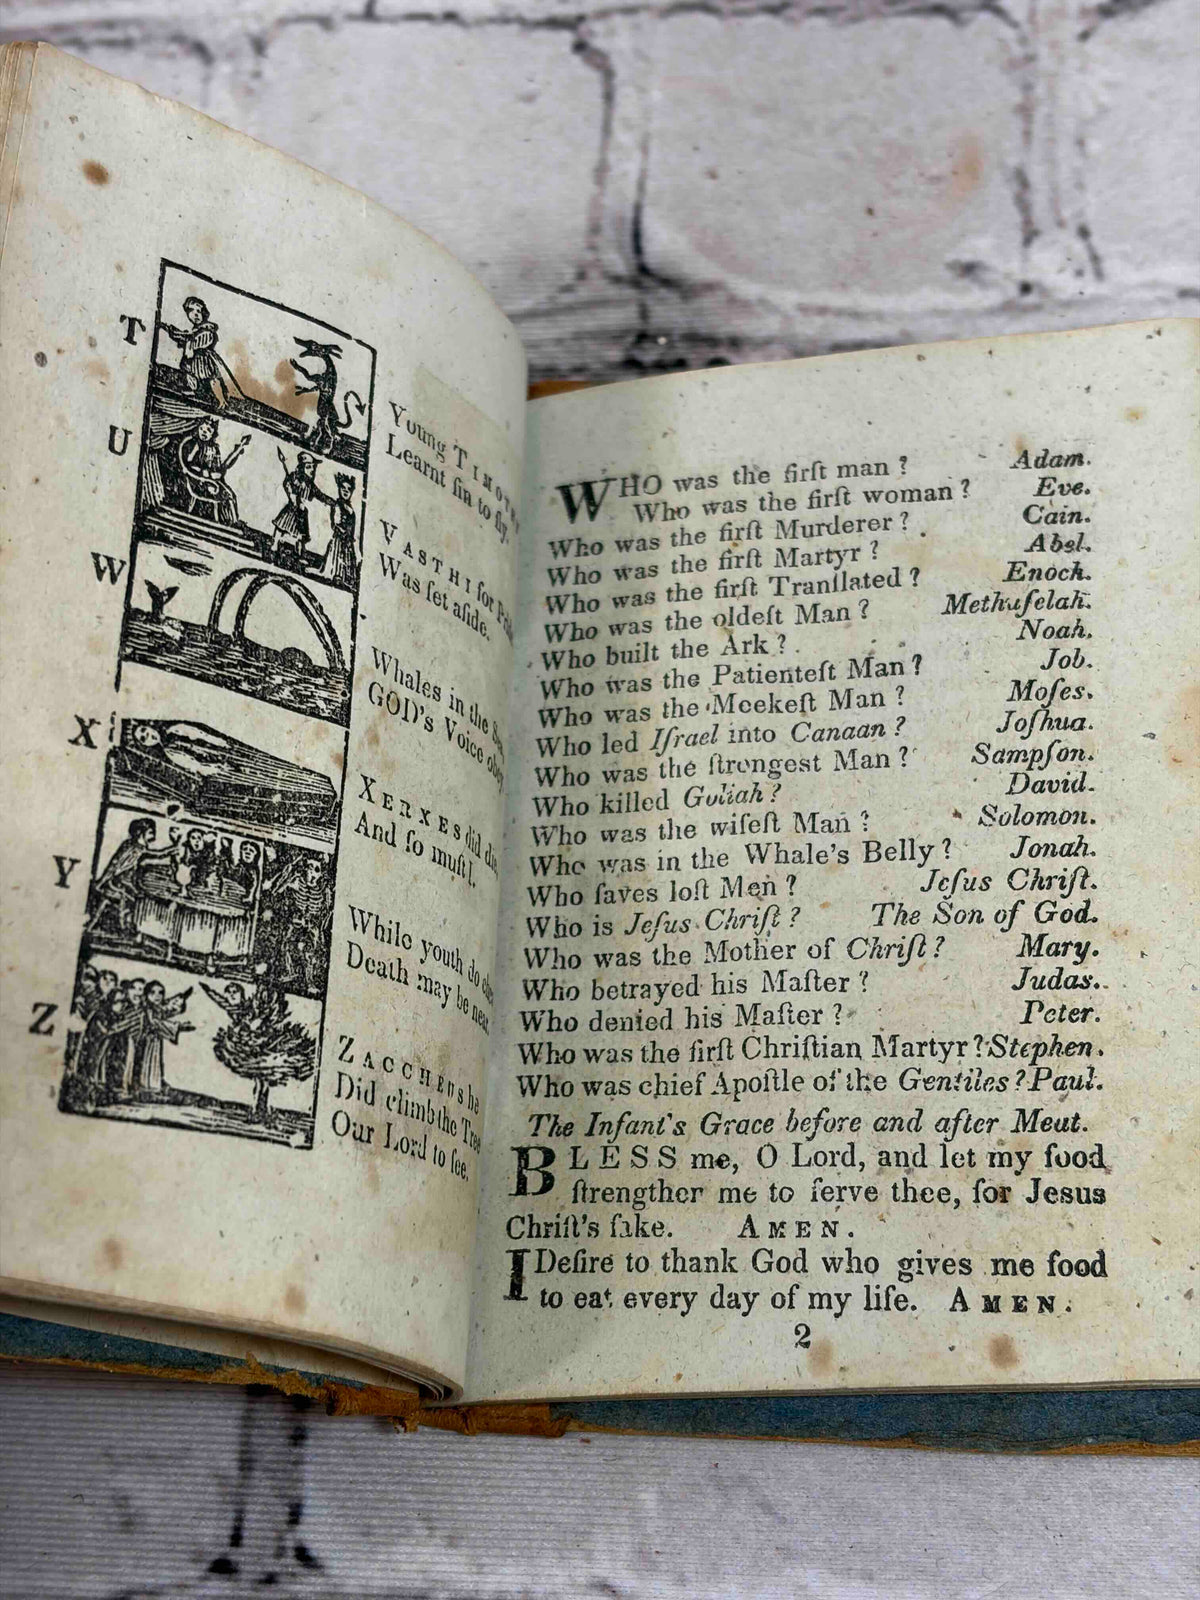 T
Young TIMOTHY
Learnt ſin to fly.
U
VASTHI for Pride
Was ſet aſide.
W
Whales in the Sea,
GOD's Voice obey
X
XERXES did die,
And ſo muſt I.
Y
While youth do chear
Death may be near
Z
ZACCHEUS he
Did climb the Tree
Our Lord to ſee.
WHO was the firſt man ? Adam.
Who was the firſt woman ? Eve.
Who was the firſt Murderer ? Cain.
Who was the firſt Martyr ? Abel.
Who was the firſt Tranſlated ? Enoch.
Who was the oldeſt Man ? Methuſelah.
Who built the Ark ? Noah.
Who was the Patienteſt Man ? Job.
Who was the Meekeſt Man ? Moſes.
Who led Iſrael into Canaan ? Joſhua.
Who was the ſtrongest Man ? Sampſon.
Who killed Goliah ? David.
Who was the wiſeſt Man ? Solomon.
Who was in the Whale's Belly ? Jonah.
Who ſaves loſt Men ? Jeſus Chriſt.
Who is Jeſus Chriſt ? The Son of God.
Who was the Mother of Chriſt ? Mary.
Who betrayed his Maſter ? Judas.
Who denied his Maſter ? Peter.
Who was the firſt Chriſtian Martyr ? Stephen.
Who was chief Apoſtle of the Gentiles ? Paul.
The Infant's Grace before and after Meat.
BLESS me, O Lord, and let my food
ſtrengther me to ſerve thee, for Jesus
Chriſt's ſake. AMEN.
I Deſire to thank God who gives me food
to eat every day of my life. AMEN.
2